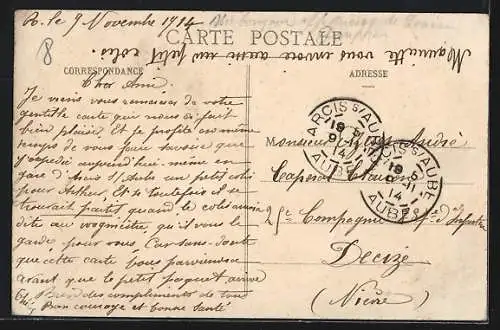 R. le 9 Novembre 1914
CARTE POSTALE
Marinette vous envoie aussi un petit colis.
CORRESPONDANCE
ADRESSE
8
Cher Ami.
Je viens vous remercier de votre
gentille carte qui nous a fait
bien plaisir. Et je profite en même
temps de vous faire savoir que
j'expédie aujourd'hui même en
gare d'Arcis s/Aube un petit colis
pour Arthur. Et si toutefois il se
trouvait partit quand le colis
dite au vaguemestre qu'il vous le
garde pour vous. Car sans doute
que cette carte vous parviendra
avant que le petit paquet arrive
des compliments de tous
Bon courage et bonne santé
Monsieur André
Caporal
Compagnie d'Infanterie
Decize
(Nièvre)
ARCIS S/AUBE
9-11
14
AUBE
ARCIS S/AUBE
9-11
14
AUBE